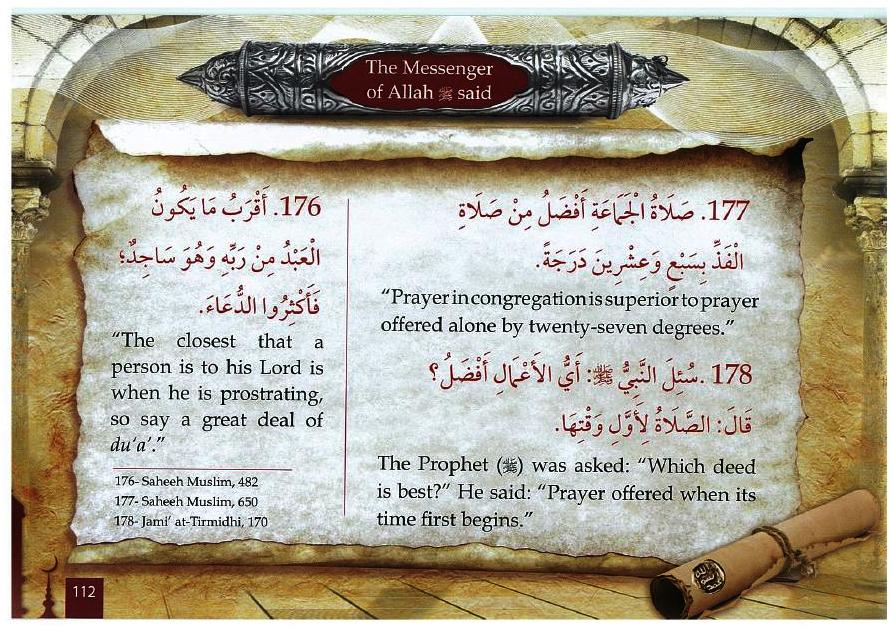 The Messenger
of Allah ﷺ said
176. أَقْرَبُ مَا يَكُونُ
الْعَبْدُ مِنْ رَبِّهِ وَهُوَ سَاجِدٌ؛
فَأَكْثِرُوا الدُّعَاءَ.
“The closest that a
person is to his Lord is
when he is prostrating,
so say a great deal of
du‘a’.”
176- Saheeh Muslim, 482
177- Saheeh Muslim, 650
178- Jami‘ at-Tirmidhi, 170
177. صَلَاةُ الْجَمَاعَةِ أَفْضَلُ مِنْ صَلَاةِ
الْفَذِّ بِسَبْعٍ وَعِشْرِينَ دَرَجَةً.
“Prayer in congregation is superior to prayer
offered alone by twenty-seven degrees.”
178. سُئِلَ النَّبِيُّ ﷺ: أَيُّ الأَعْمَالِ أَفْضَلُ؟
قَالَ: الصَّلَاةُ لِأَوَّلِ وَقْتِهَا.
The Prophet (ﷺ) was asked: “Which deed
is best?” He said: “Prayer offered when its
time first begins.”
الله
رسول
محمد
112